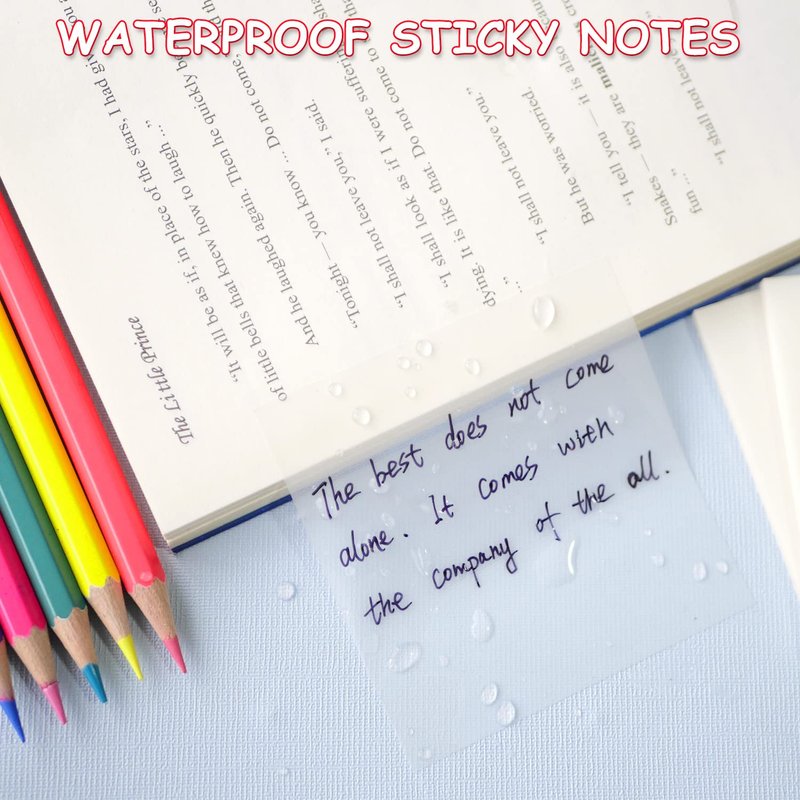 WATERPROOF STICKY NOTES
The Little Prince
“It will be as if, in place of the stars, I had
of little bells that knew how to laugh ...”
And he laughed again. Then he quickly
“Tonight — you know ... Do not come,
“I shall not leave you,” I said.
“I shall look as if I were suffering
dying. It is like that. Do not come to
...”
“I shall not leave you.”
But he was worried.
“I tell you — it is also
Snakes — they are
fun ...”
“I shall not leave
The best does not come
alone. It comes with
the company of the all.